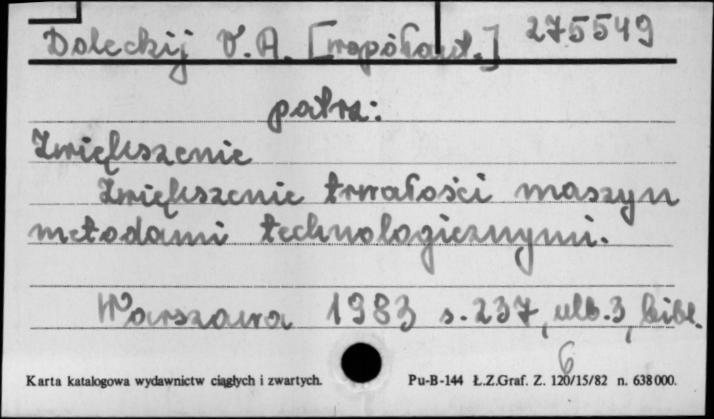 Doleckij V.A. [współaut.] 275549
patrz:
Zwiększenie
Zwiększenie trwałości maszyn
metodami technologicznymi.
Warszawa 1983 s.237, ulb.3, bibl.
6
Karta katalogowa wydawnictw ciągłych i zwartych. Pu-B-144 Ł.Z.Graf. Z. 120/15/82 n. 638000.